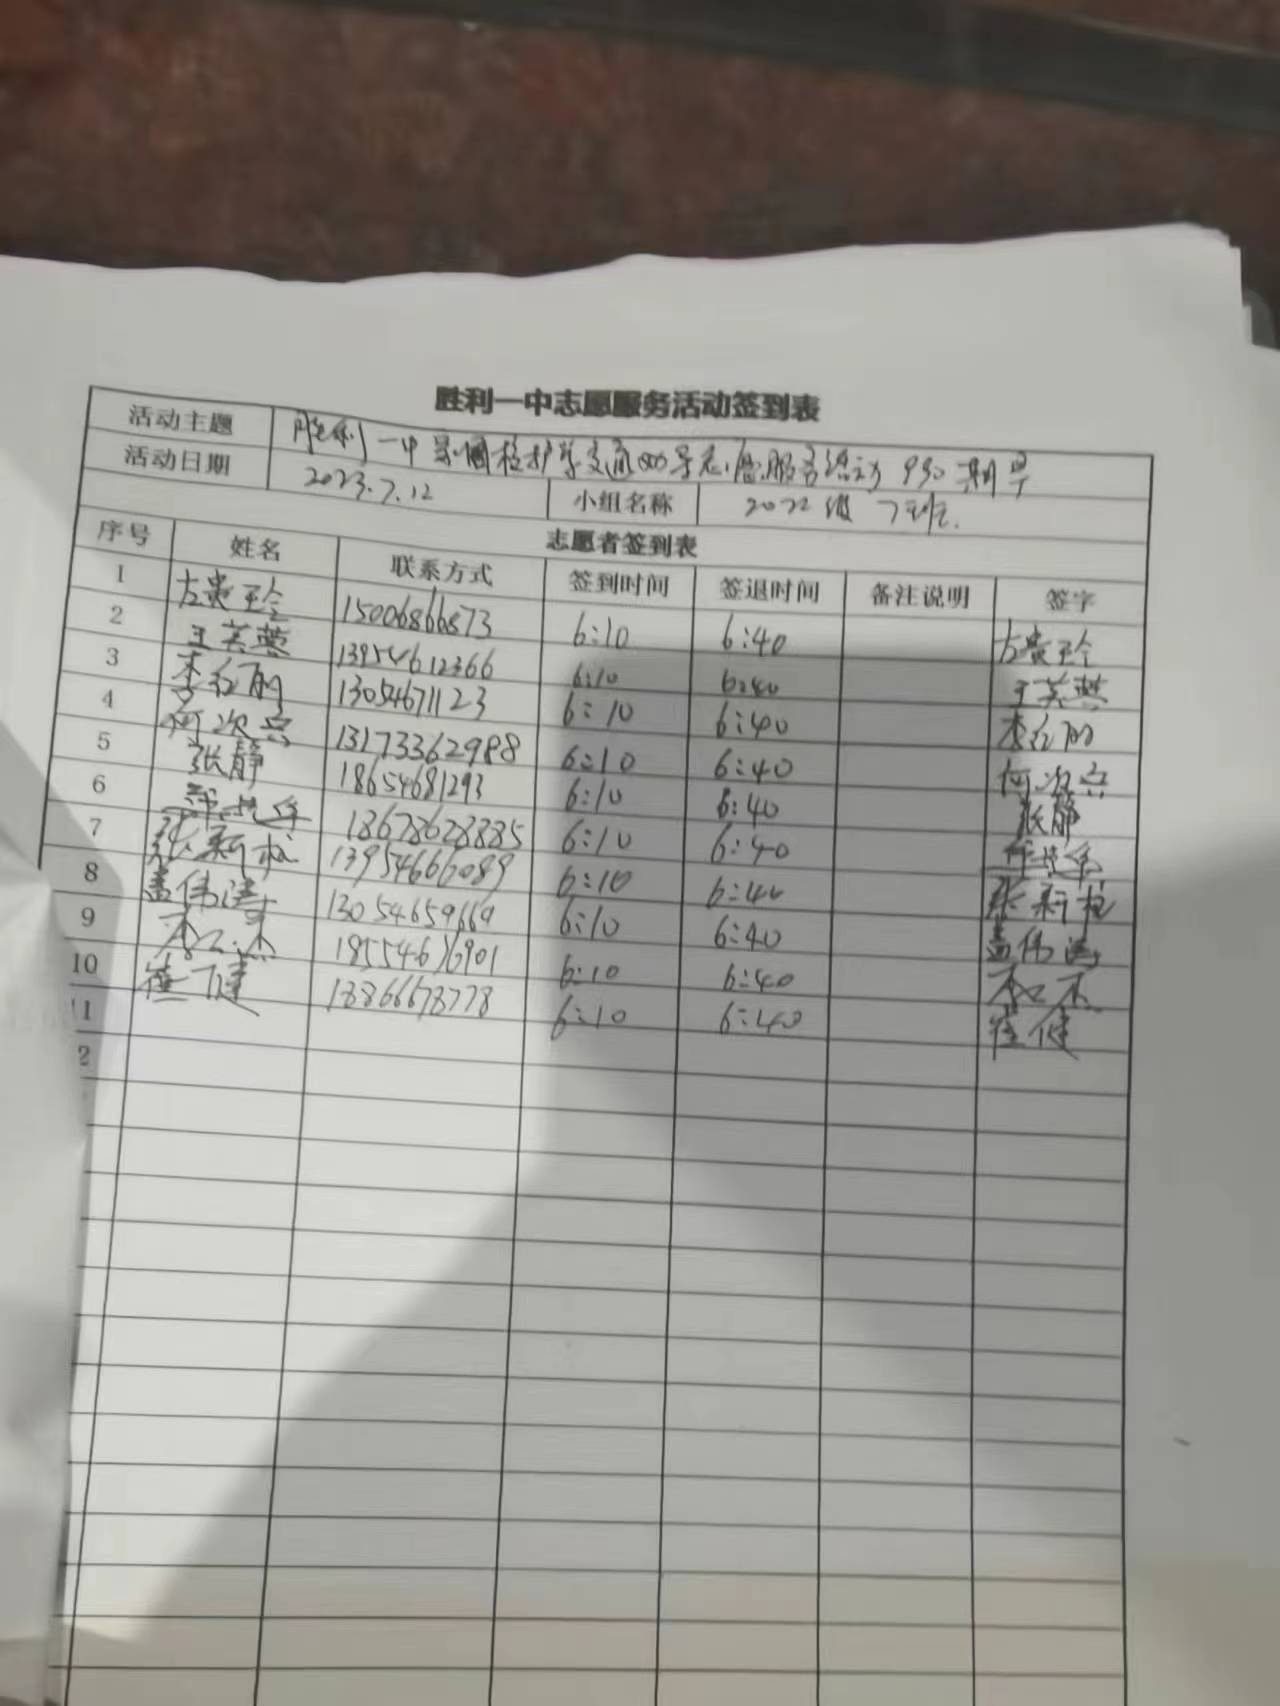 胜利一中志愿服务活动签到表
活动主题 胜利一中 护学交通 志愿服务活动 930 期早
活动日期 2023.7.12 小组名称 2022级 7班.
志愿者签到表
序号 姓名 联系方式 签到时间 签退时间 备注说明 签字
1 左贵玲 15006866873 6:10 6:40 左贵玲
2 王芙蓉 13954612366 6:10 6:40 王芙蓉
3 李红丽 13054671123 6:10 6:40 李红丽
4 13173362988 6:10 6:40
5 张静 18654681293 6:10 6:40 张静
6 18678628885 6:10 6:40
7 张新 13954666089 6:10 6:40 张新
8 盖伟涛 13054659669 6:10 6:40 盖伟涛
9 6:10 6:40
10 崔健 6:10 6:40 崔健
11
2